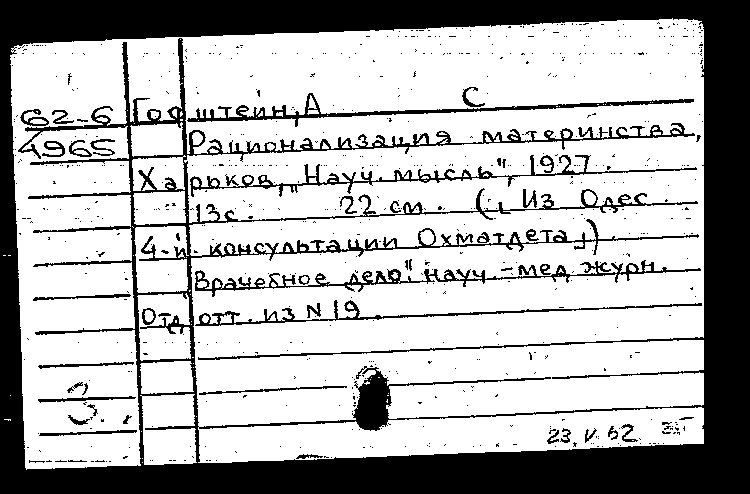 62-6 Гофштейн, А С
4965 Рационализация материнства,
Харьков, „Науч. мысль", 1927.
13с. 22 см. (Из Одес
4-й консультации Охматдета)
Врачебное дело". науч.-мед журн.
Отд отт. из N 19.
3.
23. V 62